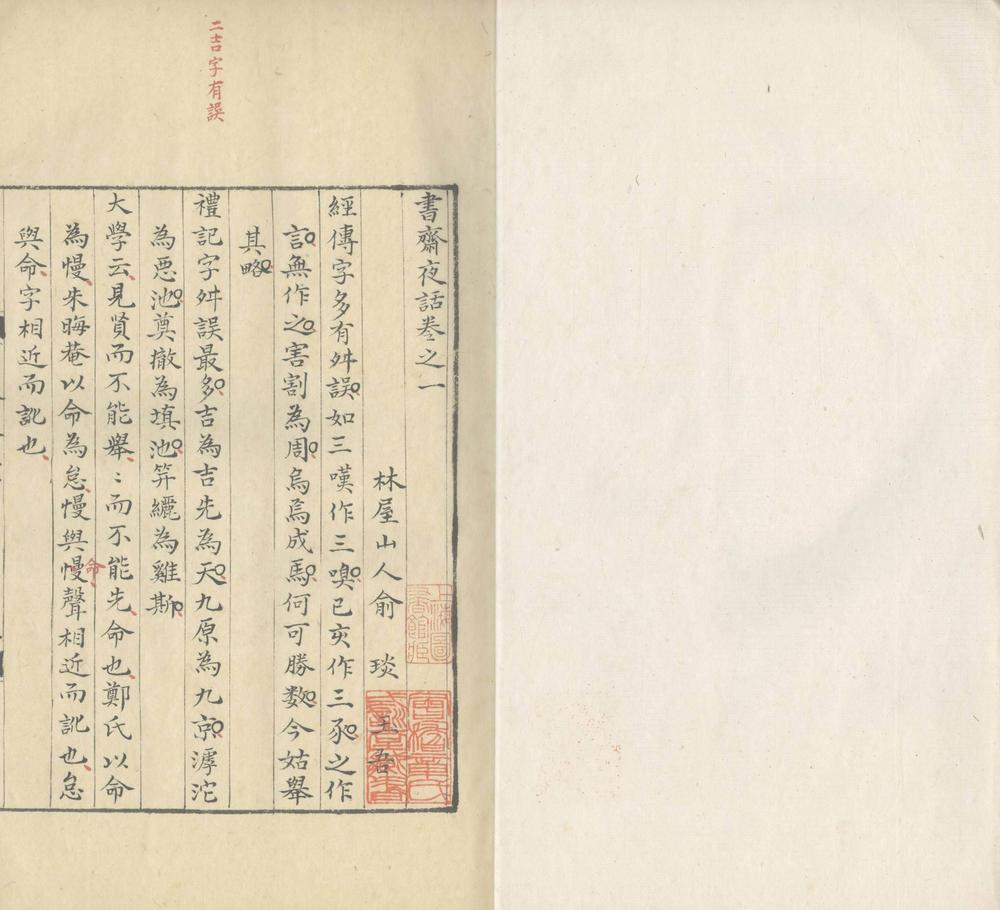 二吉字有誤
書齋夜話卷之一
林屋山人俞 琰 玉吾
經傳字多有舛誤如三嘆作三嗅已亥作三豕之作
言無作之害割為周烏舄成馬何可勝數今姑舉
其略
禮記字舛誤最多吉為吉先為天九原為九京滹沱
為惡池奠撤為填池笄纚為雞斯
大學云見賢而不能舉〻而不能先命也鄭氏以命
為慢朱晦菴以命為怠慢與慢聲相近而訛也怠
命
與命字相近而訛也
上海圖書館藏